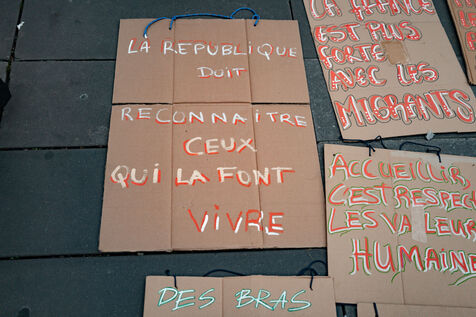 LA REPUBLIQUE
DOIT
RECONNAITRE
CEUX
QUI LA FONT
VIVRE
LA FRANCE
EST PLUS
FORTE
AVEC LES
MIGRANTS
ACCUEILLIR
C'EST RESPEC
LES VALEUR
HUMAINE
DES BRAS